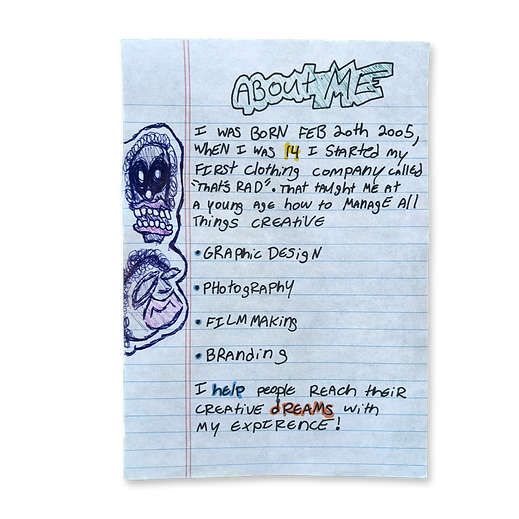 ABOUT ME
I WAS BORN FEB 20th 2005,
WHEN I WAS 14 I STARTED my
FIRST clothing company called
"THAT'S RAD". THAT TAUGHT ME AT
a young age how to MANAGE All
Things CREATIVE
• GRAPHIC DESIGN
• PHOTOGRAPHY
• FILMMAKING
• BRANDING
I help people REACH their
CREATIVE dREAMS with
MY EXPIRENCE!